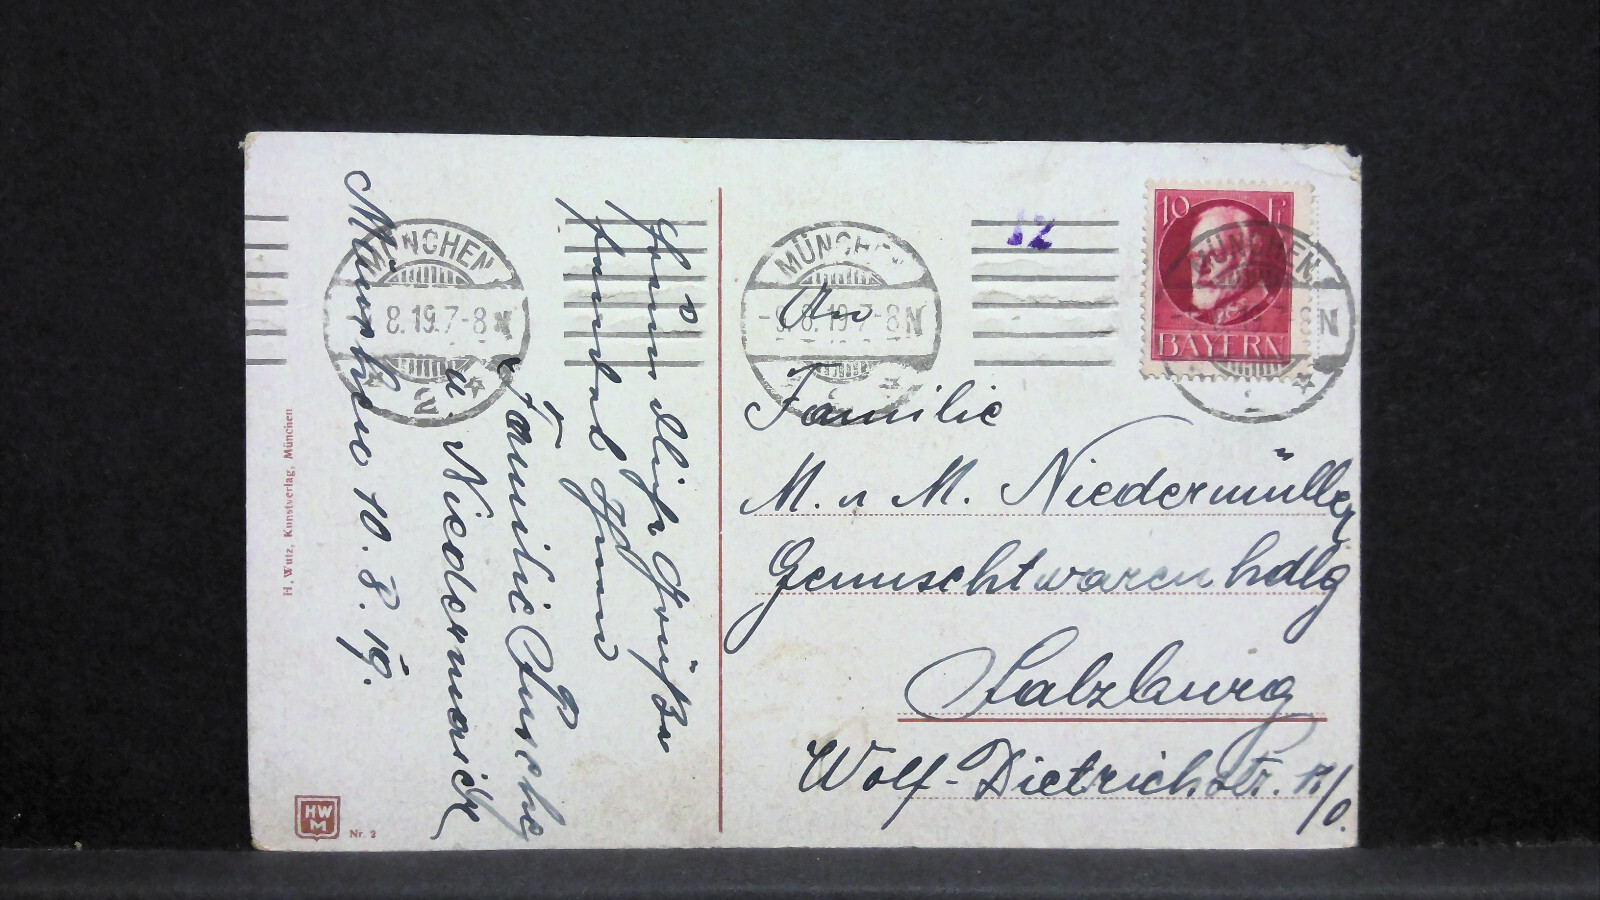 München 10. 8. 19.
Herzliche Grüße
sendet Ihnen
Familie
u. Niedermaier
MÜNCHEN
8.19.7-8N
2
MÜNCHEN
-9.8.19 7-8N
MÜNCHEN
12
10 Pf
BAYERN
An
Familie
M. u M. Niedermüller
Gemischtwarenhdlg
Salzburg
Wolf-Dietrichstr.
H. Wutz, Kunstverlag, München
HWM
Nr. 2